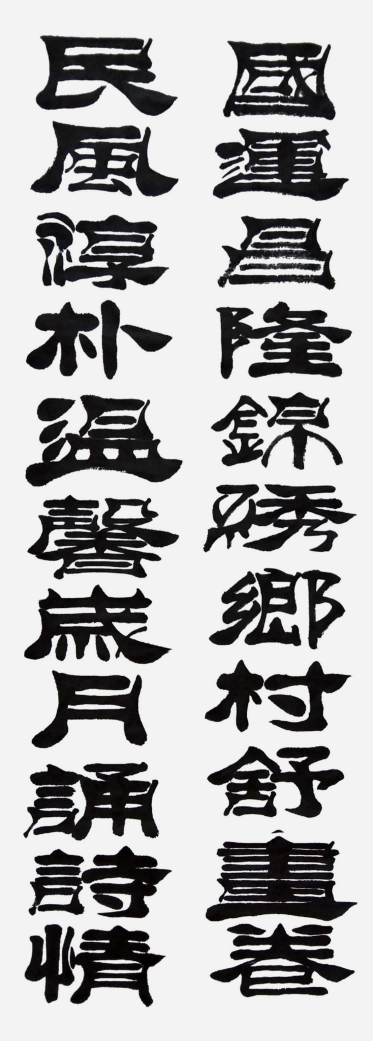 國運昌隆錦綉鄉村舒畫卷
民風淳朴温馨歲月誦詩情